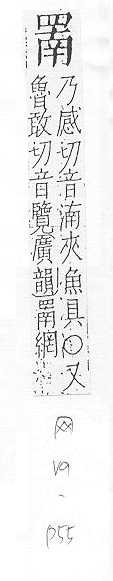 罱
乃感切音湳夾魚具〇又
魯敢切音覽廣韻罱網
网
p55